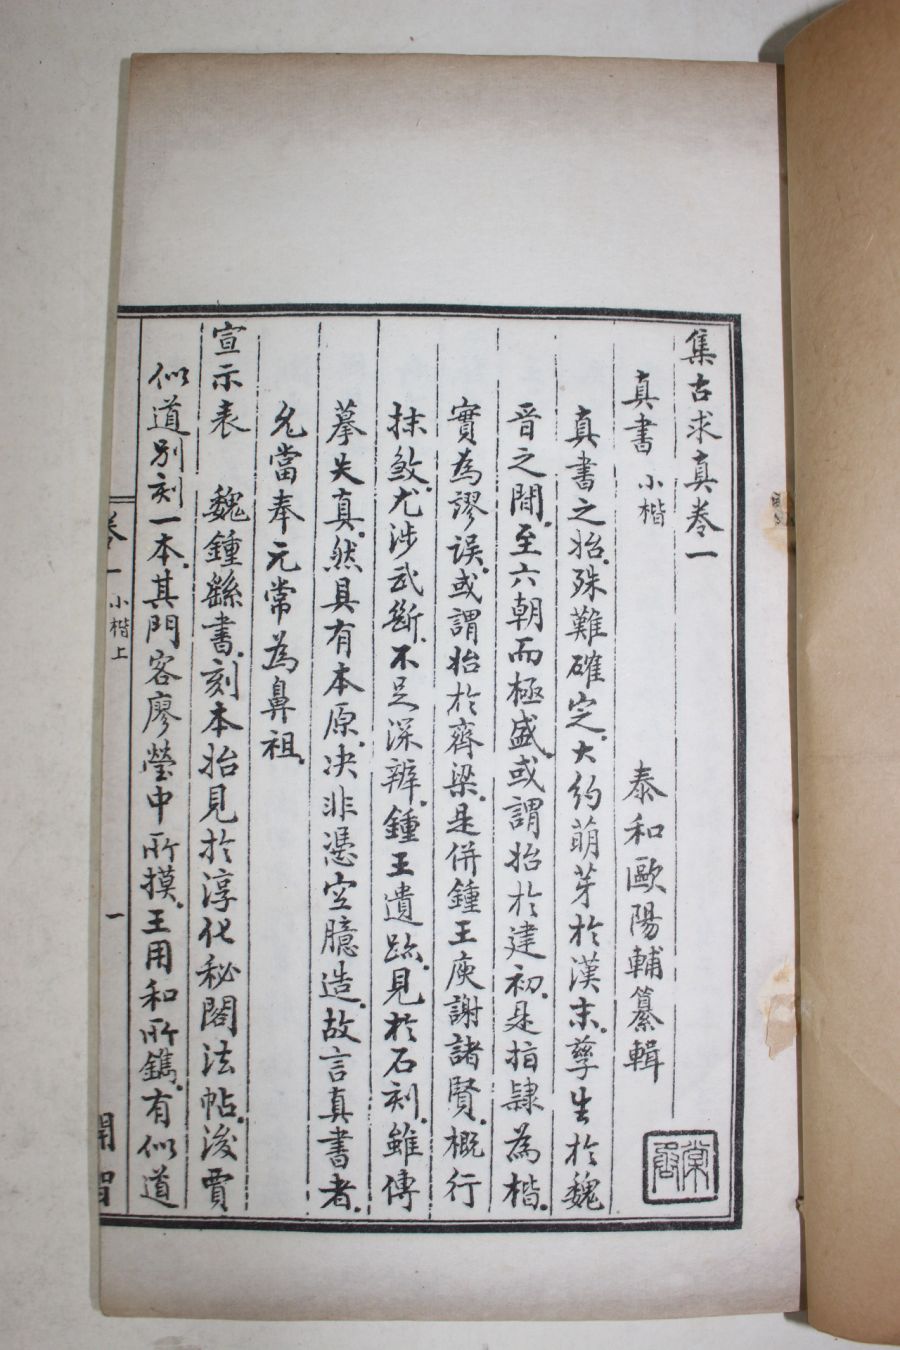 集古求真卷一
真書 小楷 泰和歐陽輔纂輯
真書之始.殊難確定.大約萌芽於漢末.孳生於魏
晋之間.至六朝而極盛.或謂始於建初.是指隸為楷.
實為謬误.或謂始於齊梁.是併鍾王庾謝諸賢.概行
抹摋.尤涉武斷.不足深辨.鍾王遺跡.見於石刻.雖傳
摹失真.然具有本原.决非憑空臆造.故言真書者.
允當奉元常為鼻祖.
宣示表 魏鍾繇書.刻本始見於淳化秘閣法帖.後賈
似道別刻一本.其門客廖瑩中所摸.王用和所鐫.有似道
卷一 小楷上 一 開智